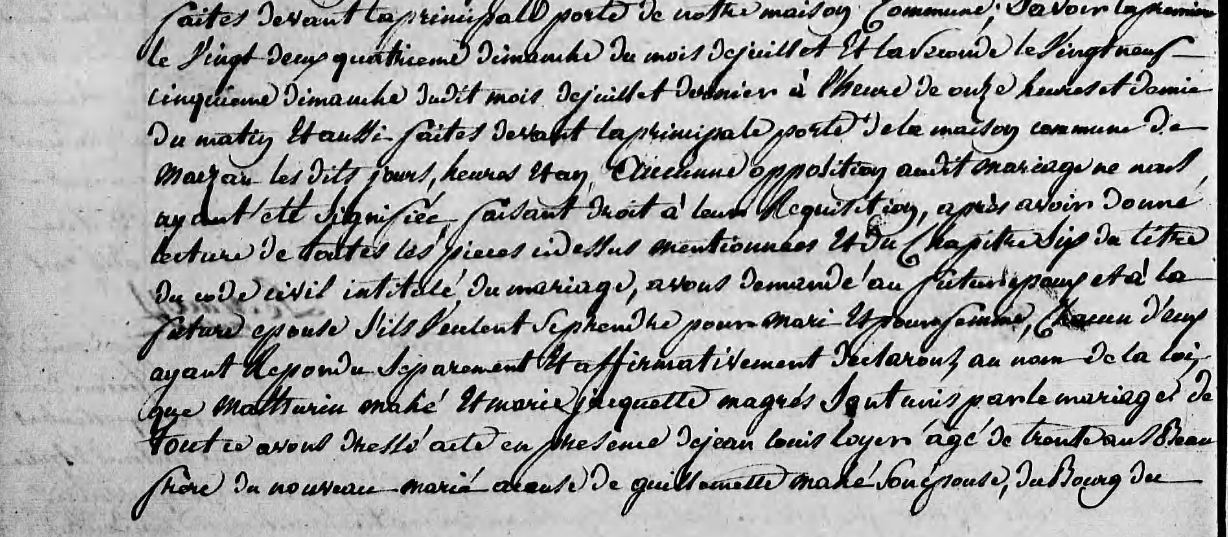 faites devant la principalle porte de nottre maison Commune; Savoir la premiere
le Vingt deux quatrieme dimanche du mois dejuillet Et la Seconde le Vingt neuf
cinquieme dimanche dudit mois dejuillet dernier à l'heure de onze heures et demie
du matin Et aussi faites devant la principale porte de la maison commune de
Mauzan les dits jours, heures Et an, Aucunne opposition audit mariage ne nous
ayant été Signifiée, faisant droit à leur Requisition, après avoir donné
lecture de toutes les pieces cidessus mentionnées Et du Chapitre Six du titre
du code civil intitulé du mariage, avons demandé au futur epoux et à la
future epouse S'ils Veulent Seprendre pour mari Et pour femme, Chacun d'eux
ayant Repondu Séparement Et affirmativement declarons au nom de la loi,
que Mathurin mahé Et marie jacquette magrés Sont unis par le mariage et de
tout ce avons dressé acte en presence dejean louis loyer âgé de trente ans Beau
frère du nouveau marié acause de guillemette mahé Son épouse, du Bourg du